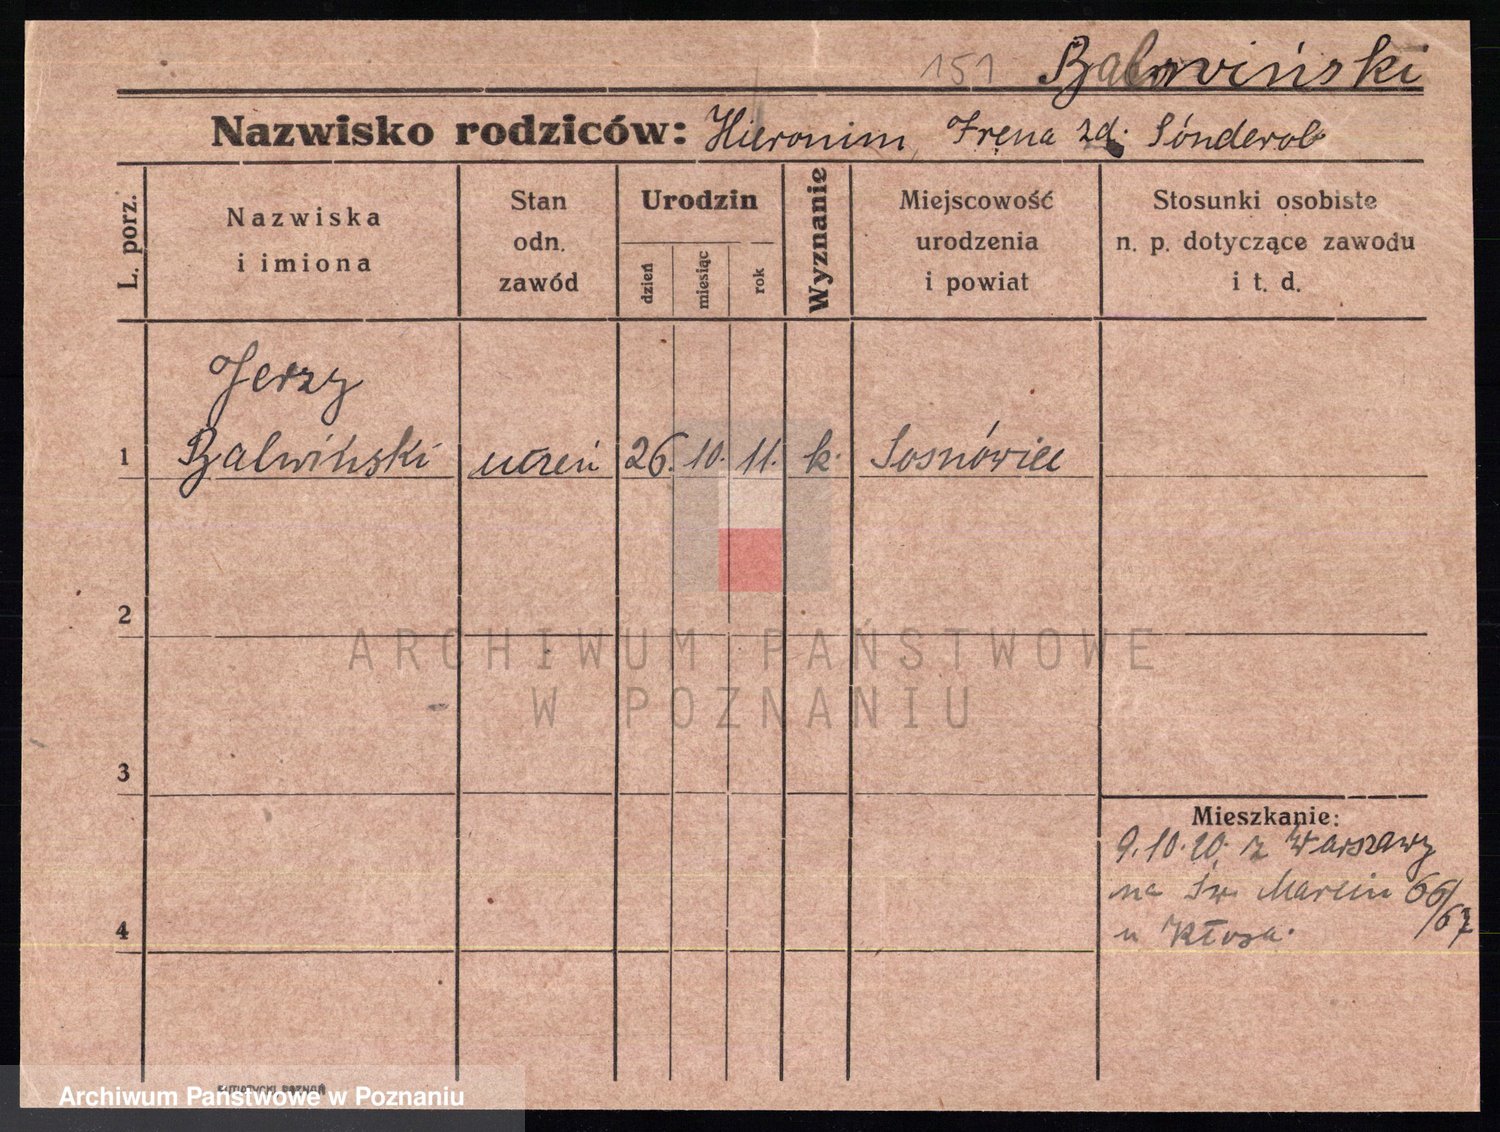 151 Balwiński
Nazwisko rodziców: Hieronim, Irena zd. Sónderob
L. porz.
Nazwiska
i imiona
Stan
odn.
zawód
Urodzin
dzień
miesiąc
rok
Wyznanie
Miejscowość
urodzenia
i powiat
Stosunki osobiste
n. p. dotyczące zawodu
i t. d.
Jerzy
1 Balwiński uczeń 26. 10. 11. k. Sosnówiec
2
ARCHIWUM PAŃSTWOWE
W POZNANIU
3
Mieszkanie:
9.10.20. z Warszawy
na Św Marcin 66/67
4 u Kłosa.
POZNAŃ
Archiwum Państwowe w Poznaniu